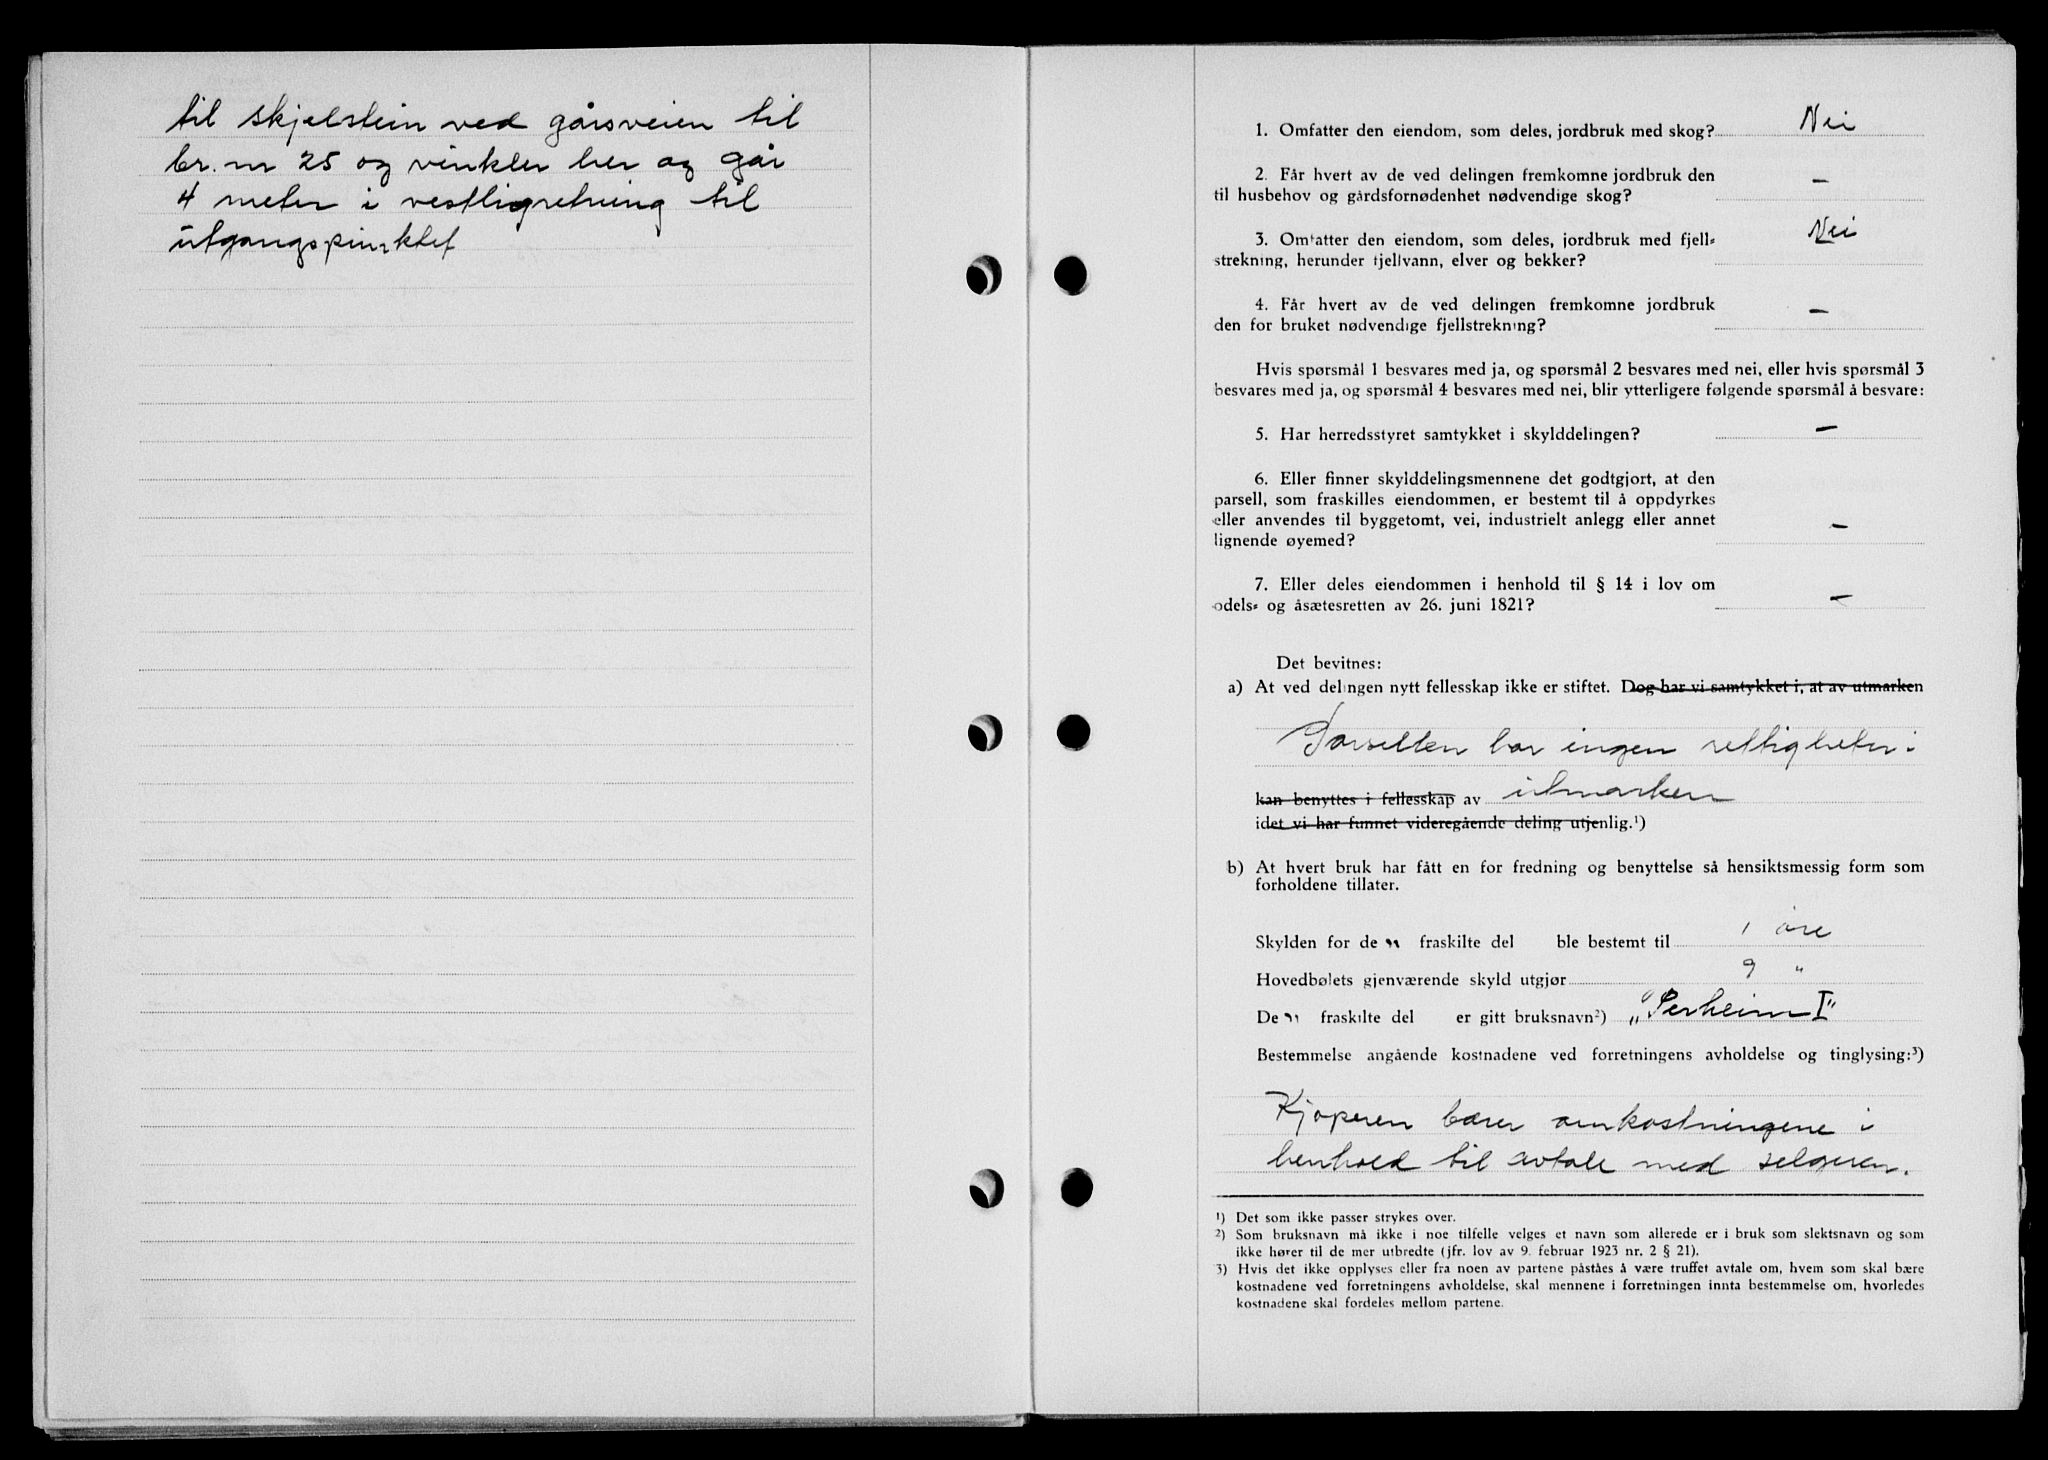 til skjelstein ved gårsveien til
br. nr 25 og vinkler her og går
4 meter i vestligretning til
utgangspunktet
1. Omfatter den eiendom, som deles, jordbruk med skog? Nei
2. Får hvert av de ved delingen fremkomne jordbruk den
til husbehov og gårdsfornødenhet nødvendige skog? –
3. Omfatter den eiendom, som deles, jordbruk med fjell-
strekning, herunder fjellvann, elver og bekker? Nei
4. Får hvert av de ved delingen fremkomne jordbruk
den for bruket nødvendige fjellstrekning? –
Hvis spørsmål 1 besvares med ja, og spørsmål 2 besvares med nei, eller hvis spørsmål 3
besvares med ja, og spørsmål 4 besvares med nei, blir ytterligere følgende spørsmål å besvare:
5. Har herredsstyret samtykket i skylddelingen? –
6. Eller finner skylddelingsmennene det godtgjort, at den
parsell, som fraskilles eiendommen, er bestemt til å oppdyrkes
eller anvendes til byggetomt, vei, industrielt anlegg eller annet
lignende øyemed? –
7. Eller deles eiendommen i henhold til § 14 i lov om
odels- og åsætesretten av 26. juni 1821? –
Det bevitnes:
a) At ved delingen nytt fellesskap ikke er stiftet. Dog har vi samtykket i, at av utmarken
Parsellen har ingen rettigheter i
kan benyttes i fellesskap av utmarken
idet vi har funnet videregående deling utjenlig.¹)
b) At hvert bruk har fått en for fredning og benyttelse så hensiktsmessig form som
forholdene tillater.
Skylden for den fraskilte del ble bestemt til 1 øre
Hovedbølets gjenværende skyld utgjør 9 "
Den fraskilte del er gitt bruksnavn²) „Perheim I"
Bestemmelse angående kostnadene ved forretningens avholdelse og tinglysing:³)
Kjøperen bærer omkostningene i
henhold til avtale med selgeren.
¹) Det som ikke passer strykes over.
²) Som bruksnavn må ikke i noe tilfelle velges et navn som allerede er i bruk som slektsnavn og som
ikke hører til de mer utbredte (jfr. lov av 9. februar 1923 nr. 2 § 21).
³) Hvis det ikke opplyses eller fra noen av partene påståes å være truffet avtale om, hvem som skal bære
kostnadene ved forretningens avholdelse, skal mennene i forretningen innta bestemmelse om, hvorledes
kostnadene skal fordeles mellom partene.